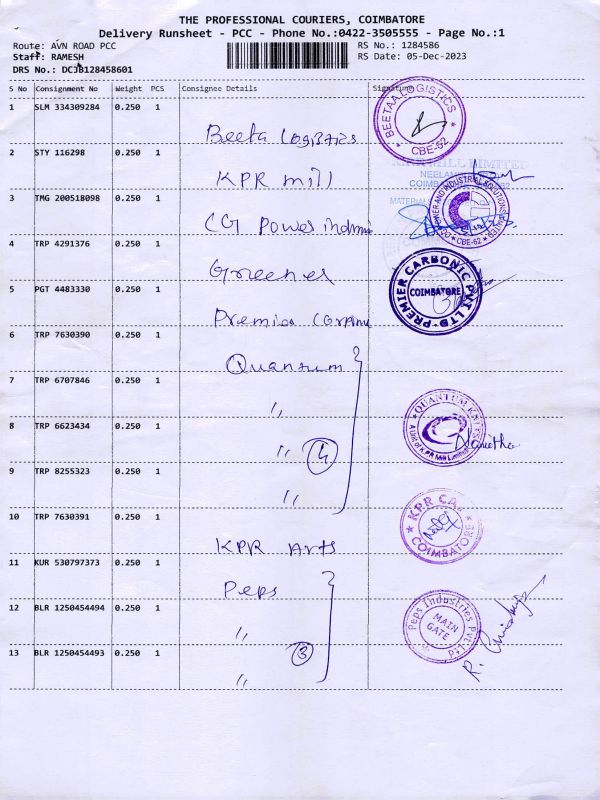 THE PROFESSIONAL COURIERS, COIMBATORE
Delivery Runsheet - PCC - Phone No.:0422-3505555 - Page No.:1
Route: AVN ROAD PCC
Staff: RAMESH
DRS No.: DCJB128458601
RS No.: 1284586
RS Date: 05-Dec-2023
S No Consignment No Weight PCS Consignee Details Signature
1 SLM 334309284 0.250 1
Beeta Logistics
BEETAA LOGISTICS
CBE-62
2 STY 116298 0.250 1
KPR mill
MILL LIMITED
3 TMG 200518098 0.250 1
CG Power
POWER AND INDUSTRIAL SOLUTIONS LIMITED
CBE-62
4 TRP 4291376 0.250 1
Greenes
PREMIER CARBONIC PVT LTD
COIMBATORE
5 PGT 4483330 0.250 1
Premier
6 TRP 7630390 0.250 1
Quantum
7 TRP 6707846 0.250 1
〃
8 TRP 6623434 0.250 1
〃 4
QUANTUM KNITS
A Unit of KPR Mill Limited
9 TRP 8255323 0.250 1
〃
10 TRP 7630391 0.250 1
KPR Arts
KPR
COIMBATORE
11 KUR 530797373 0.250 1
Peps
12 BLR 1250454494 0.250 1
〃 3
Peps Industries Pvt Ltd
MAIN
GATE
13 BLR 1250454493 0.250 1
〃